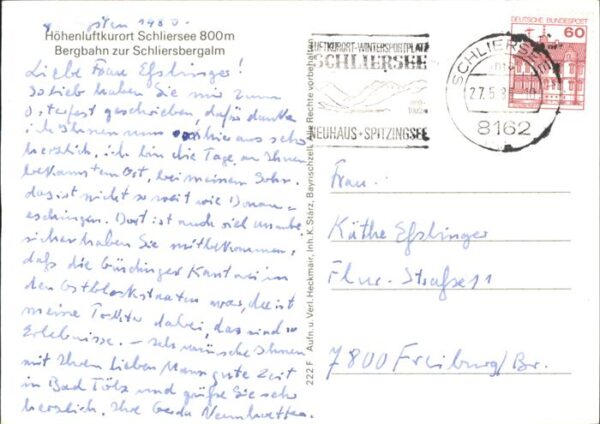 Höhenluftkurort Schliersee 800m
Bergbahn zur Schliersbergalm
Liebe Frau Eßlinger!
So lieb haben Sie mir zum
Osterfest geschrieben, dafür danke
ich Ihnen nun von hier aus sehr
herzlich, ich bin die Tage an Ihnen
bekannten Ort, bei meinem Sohn.
das ist nicht so weit wie Donau-
eschingen. Dort ist auch viel
sicher haben Sie mitbekommen,
daß die Kantorei in
den Ostblockstaaten war, da ist
meine Tochter dabei, das sind so
Erlebnisse. – Ich wünsche Ihnen
mit Ihrem lieben Mann gute Zeit
in Bad Tölz und grüße Sie sehr
herzlich. Ihre Gerda
222 F Aufn. u. Verl. Heckmair, Inh. K. Stärz, Bayrischzell. Alle Rechte vorbehalten
LUFTKURORT-WINTERSPORTPLATZ
SCHLIERSEE
NEUHAUS + SPITZINGSEE
SCHLIERSEE
27.5.8
8162
DEUTSCHE BUNDESPOST
60
Frau
Käthe Eßlinger
Flur-Straße 11
7800 Freiburg/Br.